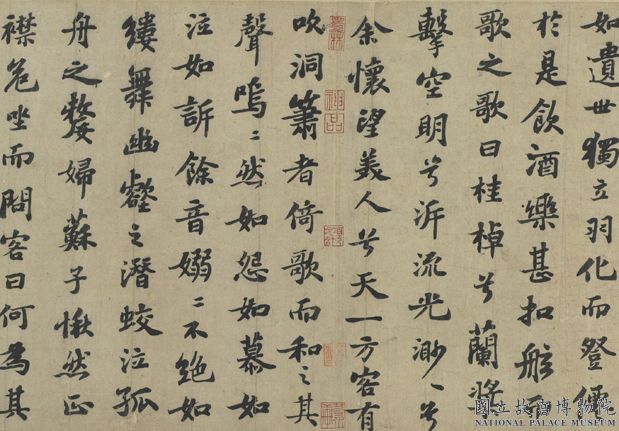 如遺世獨立羽化而登僊
於是飲酒樂甚扣舷
歌之歌曰桂棹兮蘭槳
擊空明兮泝流光渺〻兮
余懷望美人兮天一方客有
吹洞簫者倚歌而和之其
聲嗚〻然如怨如慕如
泣如訴餘音嫋〻不絕如
縷舞幽壑之潛蛟泣孤
舟之嫠婦蘇子愀然正
襟危坐而問客曰何為其
國立故宮博物院
NATIONAL PALACE MUSEUM